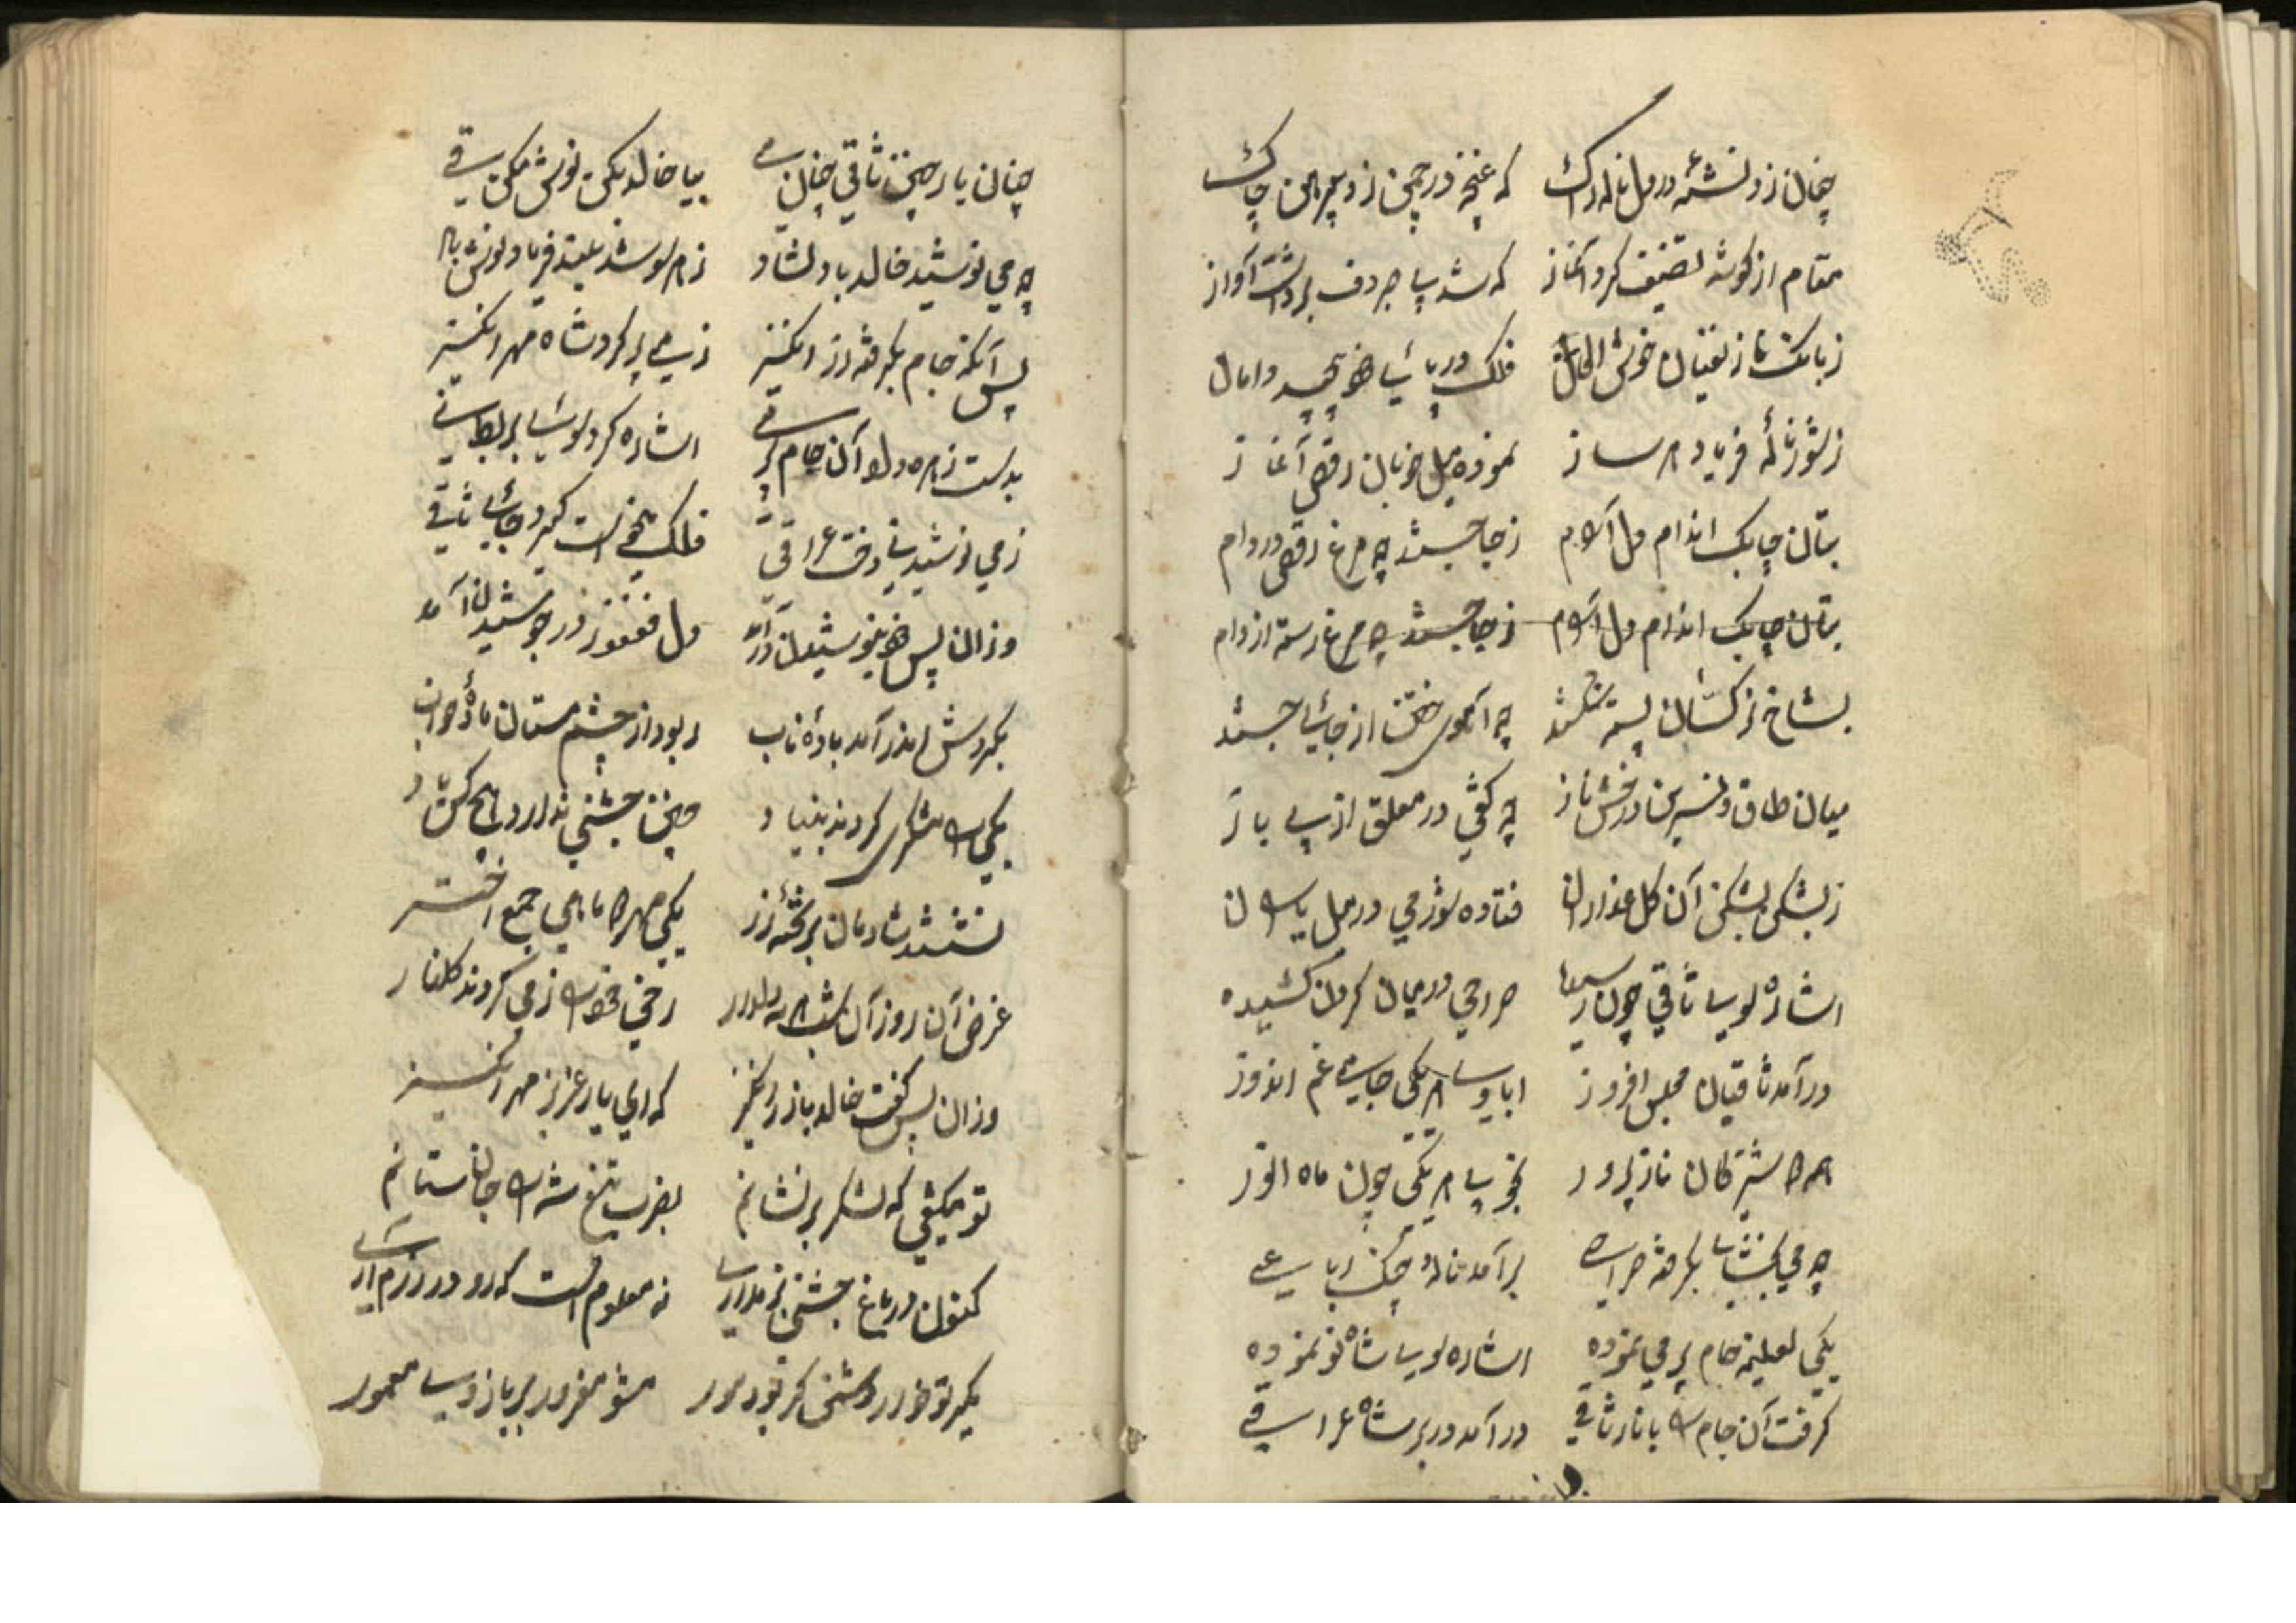 چنان زد نشئه در دل ناله اک که غنچه در چمن زد پیرهن چاک
مقام از کوشه تصنیف کرد آغاز که شد پا چو دف برداشت آواز
ز بانک ناز خوش الحان فلک در پای پیچید دامان
ز شور نالهٔ فریاد هر ساز نموده میل خوبان رقص آغاز
بتان چابک اندام دل آرام ز جا جستند چه مرغ رقص در دام
بتان چابک اندام دل آرام ز جا جستند چه مرغ رسته از دام
بشاخ نرکستان پسته شکستند چه آهوی ختن از جای جستند
میان طاق و نسرین در خش ناز چه کفی در معلق از پی باز
ز بشکن بشکن آن کل عذاران فتاده شور می در میل یاران
اشاره سوی ثاقی چون رسیده صراحی در میان کردن کشیده
در آمد ثاقیان مجلس افروز ابا وی هر یکی جامی غم اندوز
همه شیرکان ناز پرور بخوبی هر یکی چون ماه انور
چه می بکرفته صراحی برآمد ناله چنک رباعی
یکی لعلینه جام پر می نموده اشاره سوی شاه نو نموده
کرفت آن جام را با ناز ثاقی در آمد در بر شاه عراقی
چنان یار چنین ثاقی چنان می بیا خالد بکن نوش مکن قی
چه می نوشید خالد با دلشاد ز هر سو شد بلند فریاد نوش باد
پس آنکه جام بکرفته ز می پر کرد شاه مهر انکیز
بدست زهره داد آن جام پر می اشاره کرد سوی بربط نی
ز می نوشیدنی وقت عراقی فلک میخواست کیرد جای ثاقی
وزان پس بنوشیدن در آمد دل فغفور در جوشیدن آمد
بکردش اندر آمد بادهٔ ناب ربود از چشم مستان مادهٔ خواب
یکی را شکری کردند بنیاد چنین جشنی ندارد هیچ کس یاد
نشستند شادمان بر تخته زر یکی مهر ماهی جمع اختر
غرض آن روز آن شب رخی خود را ز می کردند کلنار
وزان پس کفت خالد باز که ای یار عزیز مهر انکیز
تو میکفتی که لشکر بر نشانم بضرب تیغ شه را جان ستانم
کنون در باغ جشن نه معلوم است که رو در رزم آری
مشو مغرور بر بازوی معمور